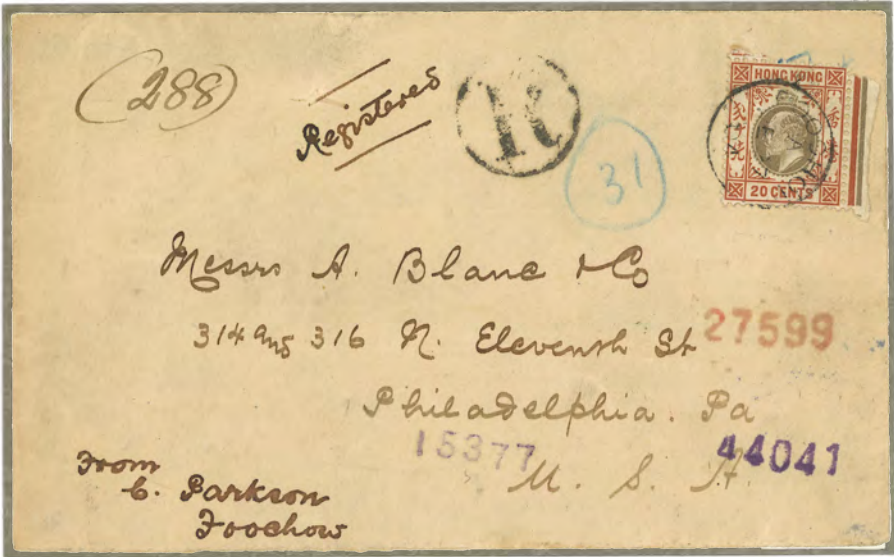 (288)
Registered
R
31
HONG KONG
20 CENTS
Messrs A. Blanc & Co
314 and 316 N. Eleventh St
27599
Philadelphia. Pa
15377
44041
U. S. A.
From
C. Parkson
Foochow